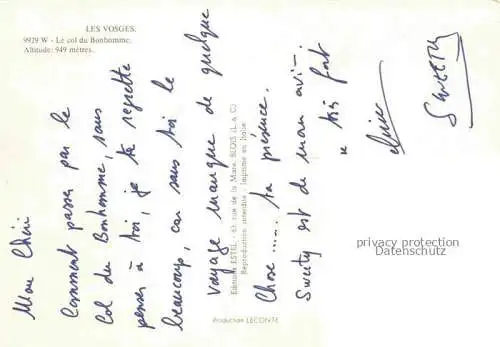 LES VOSGES.
9929 W - Le col du Bonhomme.
Altitude: 949 mètres.
Mon Chéri
Comment passer par le
Col du Bonhomme, sans
penser à toi, je te regrette
beaucoup, car sans toi le
voyage manque de quelque
Chose ..... ta présence.
Sweety est de mon avi-
" très fort
SWEETY
Editions ESTEL - 63, rue de la Mare, BLOIS (L. & C.)
Reproduction interdite - Imprimé en Italie
Production LECONTE
privacy protection
Datenschutz